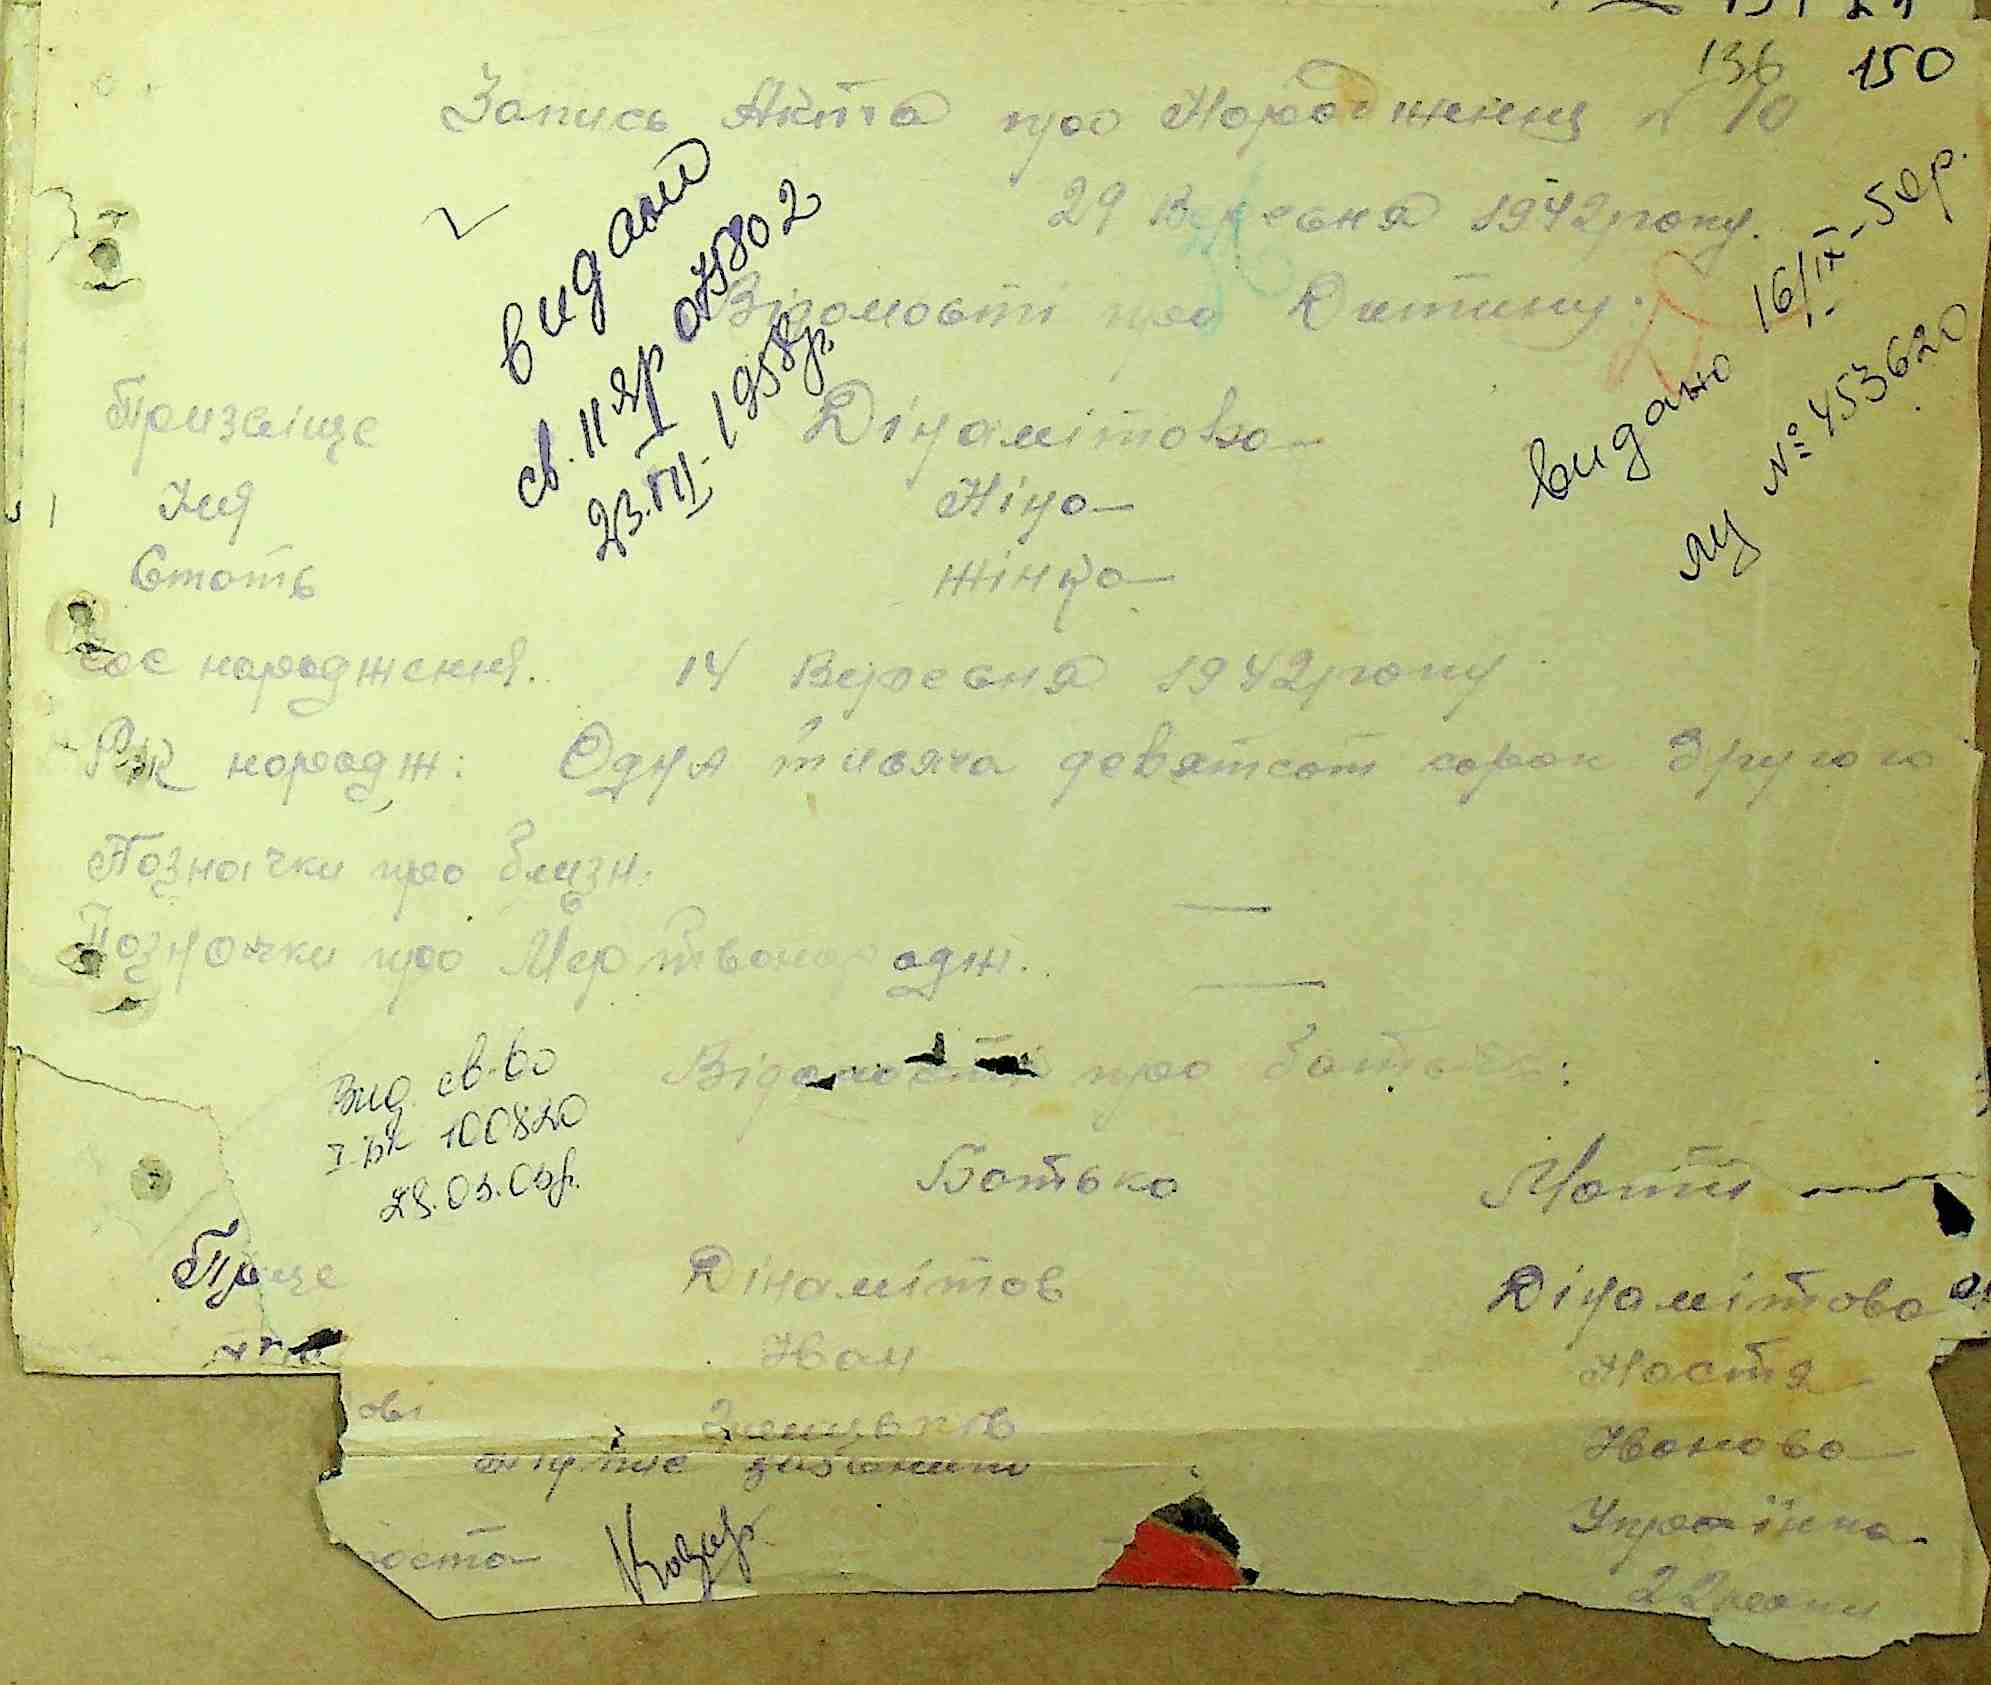 136 150
Запись Акта про Народження № 10
29 Вересня 1942 року.
Відомості про Дитину:
видано
св. II ЯР 075802
23.VII.1958р.
видано 16/IX-50р.
ЯЦ № 453620
Призвіще Дінамітова
Імя Ніна
Стать жінка
час народження. 14 Вересня 1942 року
Рік народж: Одня тисяча девятсот сорок Другого
Позначки про близн. —
Позначки про Мертвонародж. —
Вид. св-во
100820
Відомості про батьків:
Батько Мати
Пр ще Дінамітов Дінамітова
Іван Настя
ові Іванова
Українка
оста 22 роки